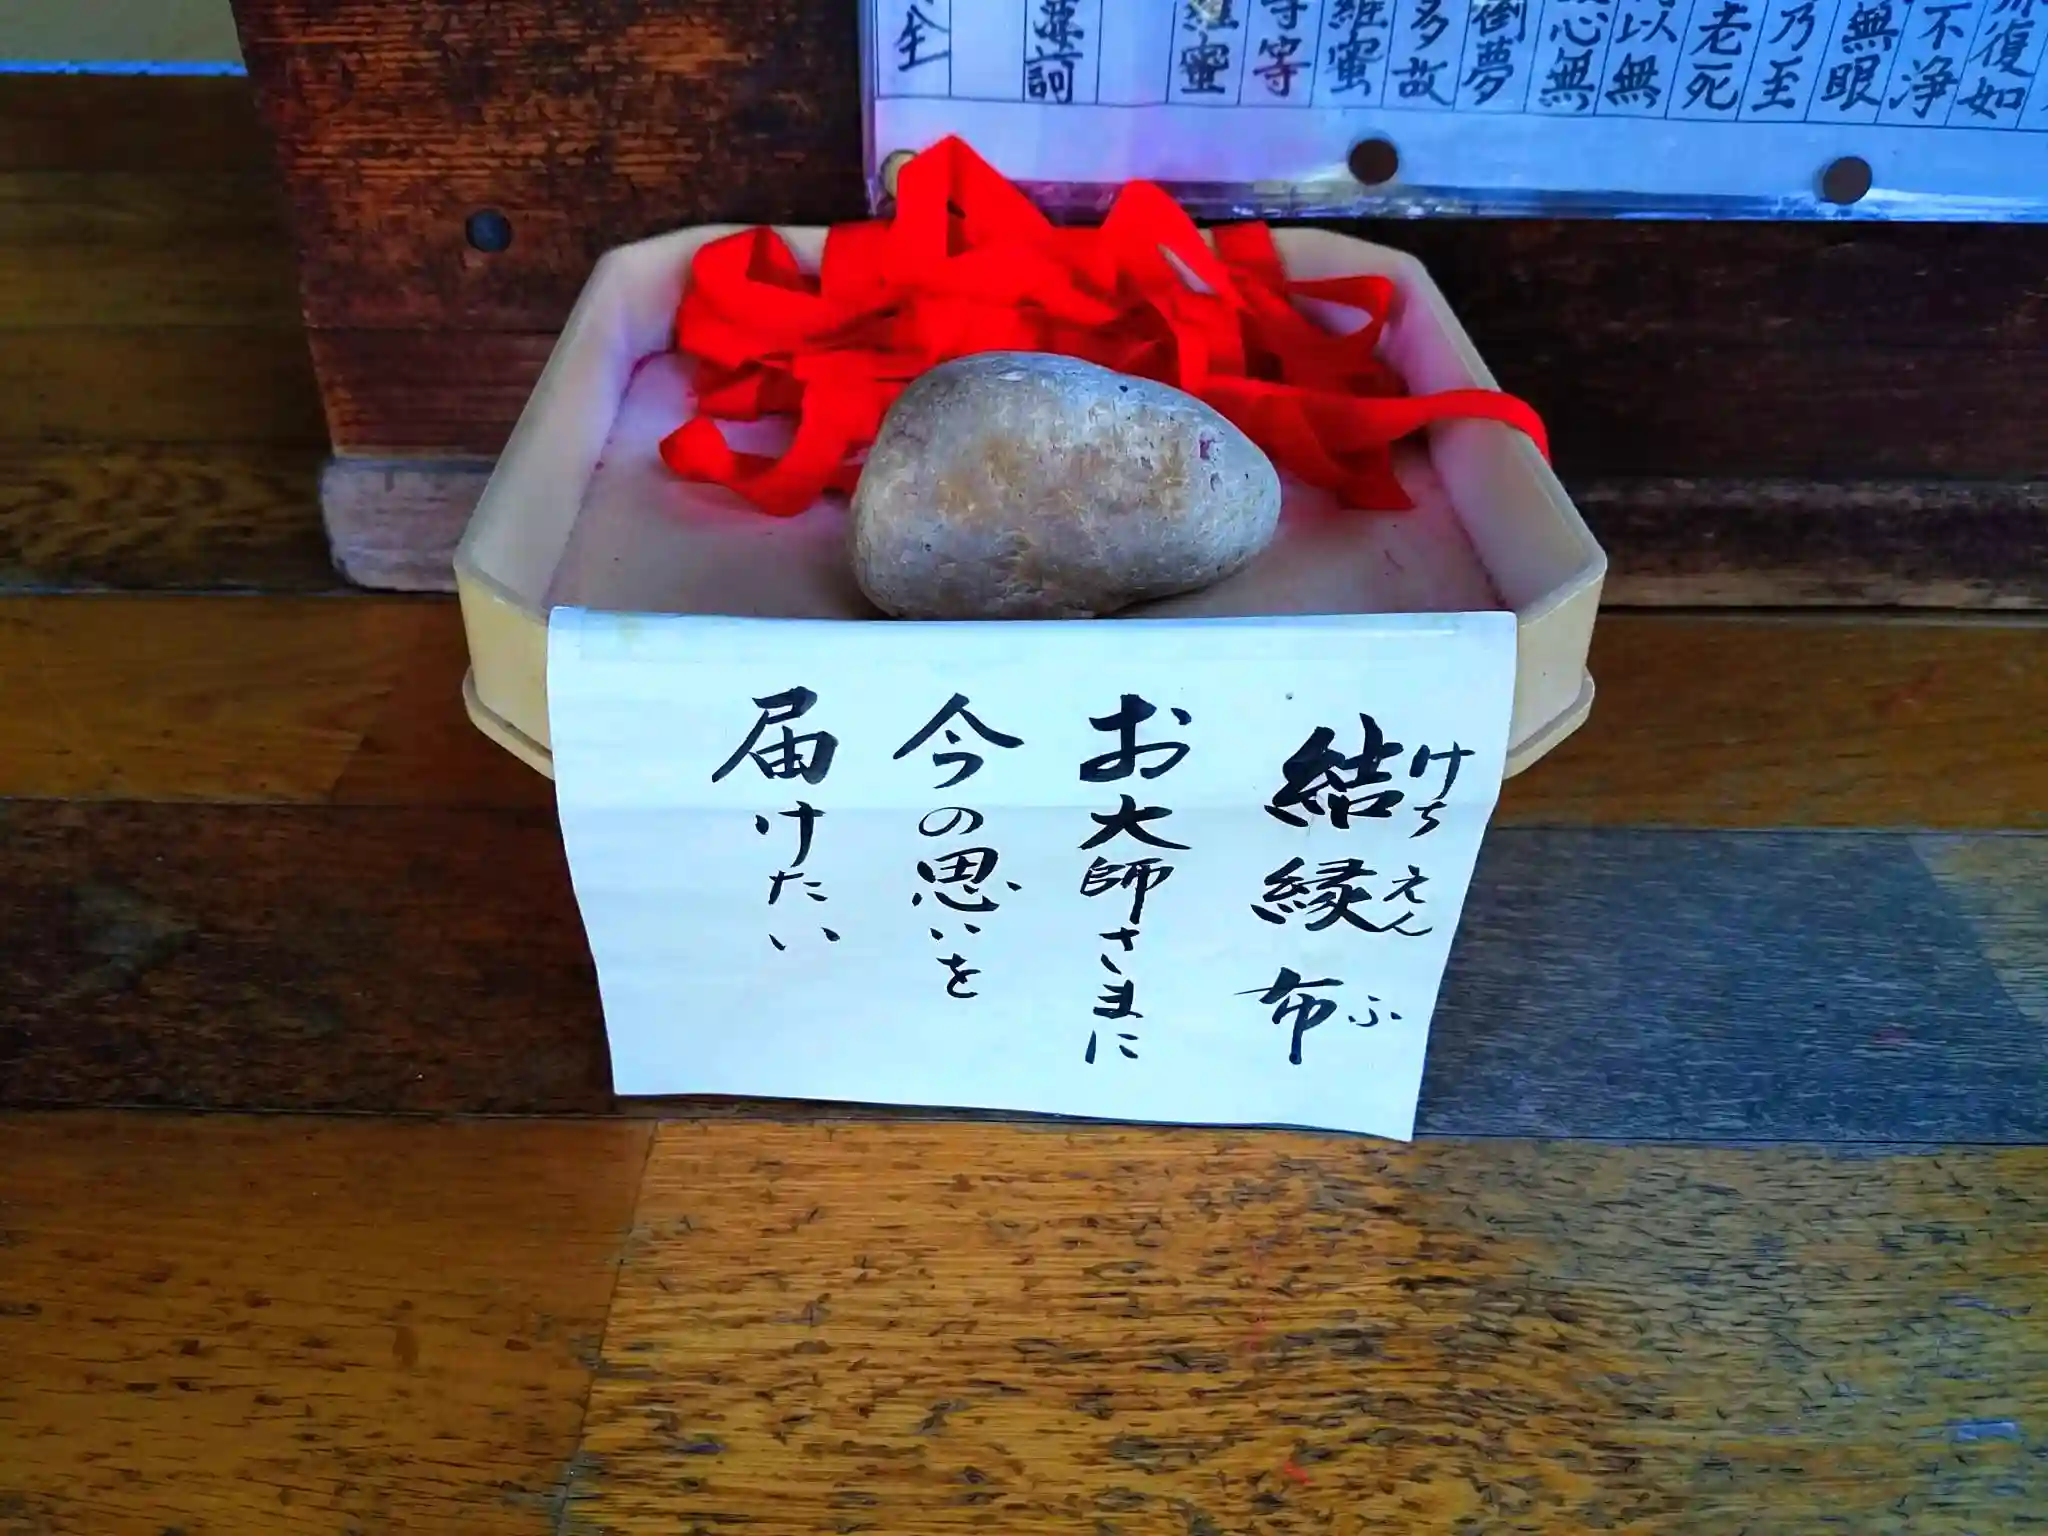 結縁布
けちえんふ
お大師さまに
今の思いを
届けたい
復如
不浄
無眼
乃至
老死
以無
心無
倒夢
多故
羅蜜
等等
蜜
訶